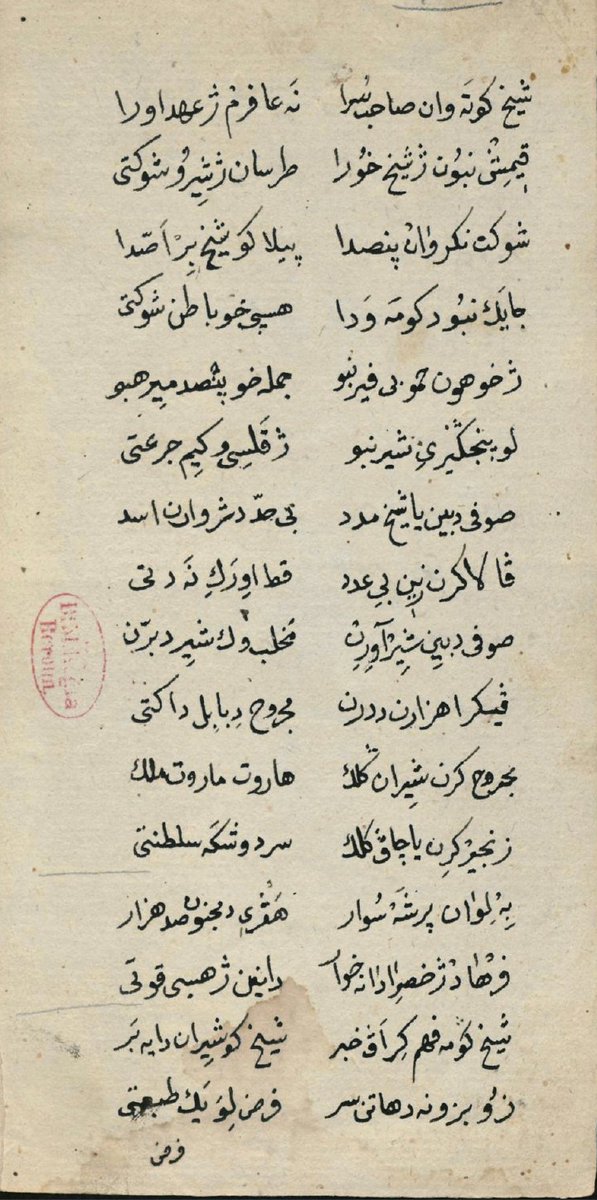 شیخ کوته وان صاحب سُرا نَه عافرم ژ عهد اورا
قیمِش نبُون ژ شیخ خُورا طرسان ژ شیرُو شوکتی
شوکت نکروان پنصدا پیلا کو شیخ بِرْ اَصّدا
جایَك نبُود کومَه وَدا هسپی خو باطن شوکتی
ژ خو هون خو بی فیر نبو جمله خو پنصد میر هبو
لو پنجگیری شیر نبو ژ قَلسِی وکیم جرعتی
صوفی دبین یا شیخ مدد بی حدّ دشروان اسد
ڤالاکرن زین بی عدد قط اورَكِ نَه دتی
صوفی دبین شیر آورن مخلب وك شیر دبرّن
ڤیکرا هزارن ددرن مجروح دبابل داکتی
مجروح کرن شیران گلك هاروت ماروت ملك
زنجیر کرن یا چاڤ کلك سردوشکَه سلطنتی
بهْ لِوان پرشَهْ سُوار هَڤری مجنون صد هزار
فرهاد ژ خصرا دانه خوار دانین ژ هسپی قوتی
شیخ کومه فهم کر اَڤ خبر شیخ کو شیران دایه بَر
زو بزونه دهاتن سر فرض لِوَ یَك طبعتی
فرض